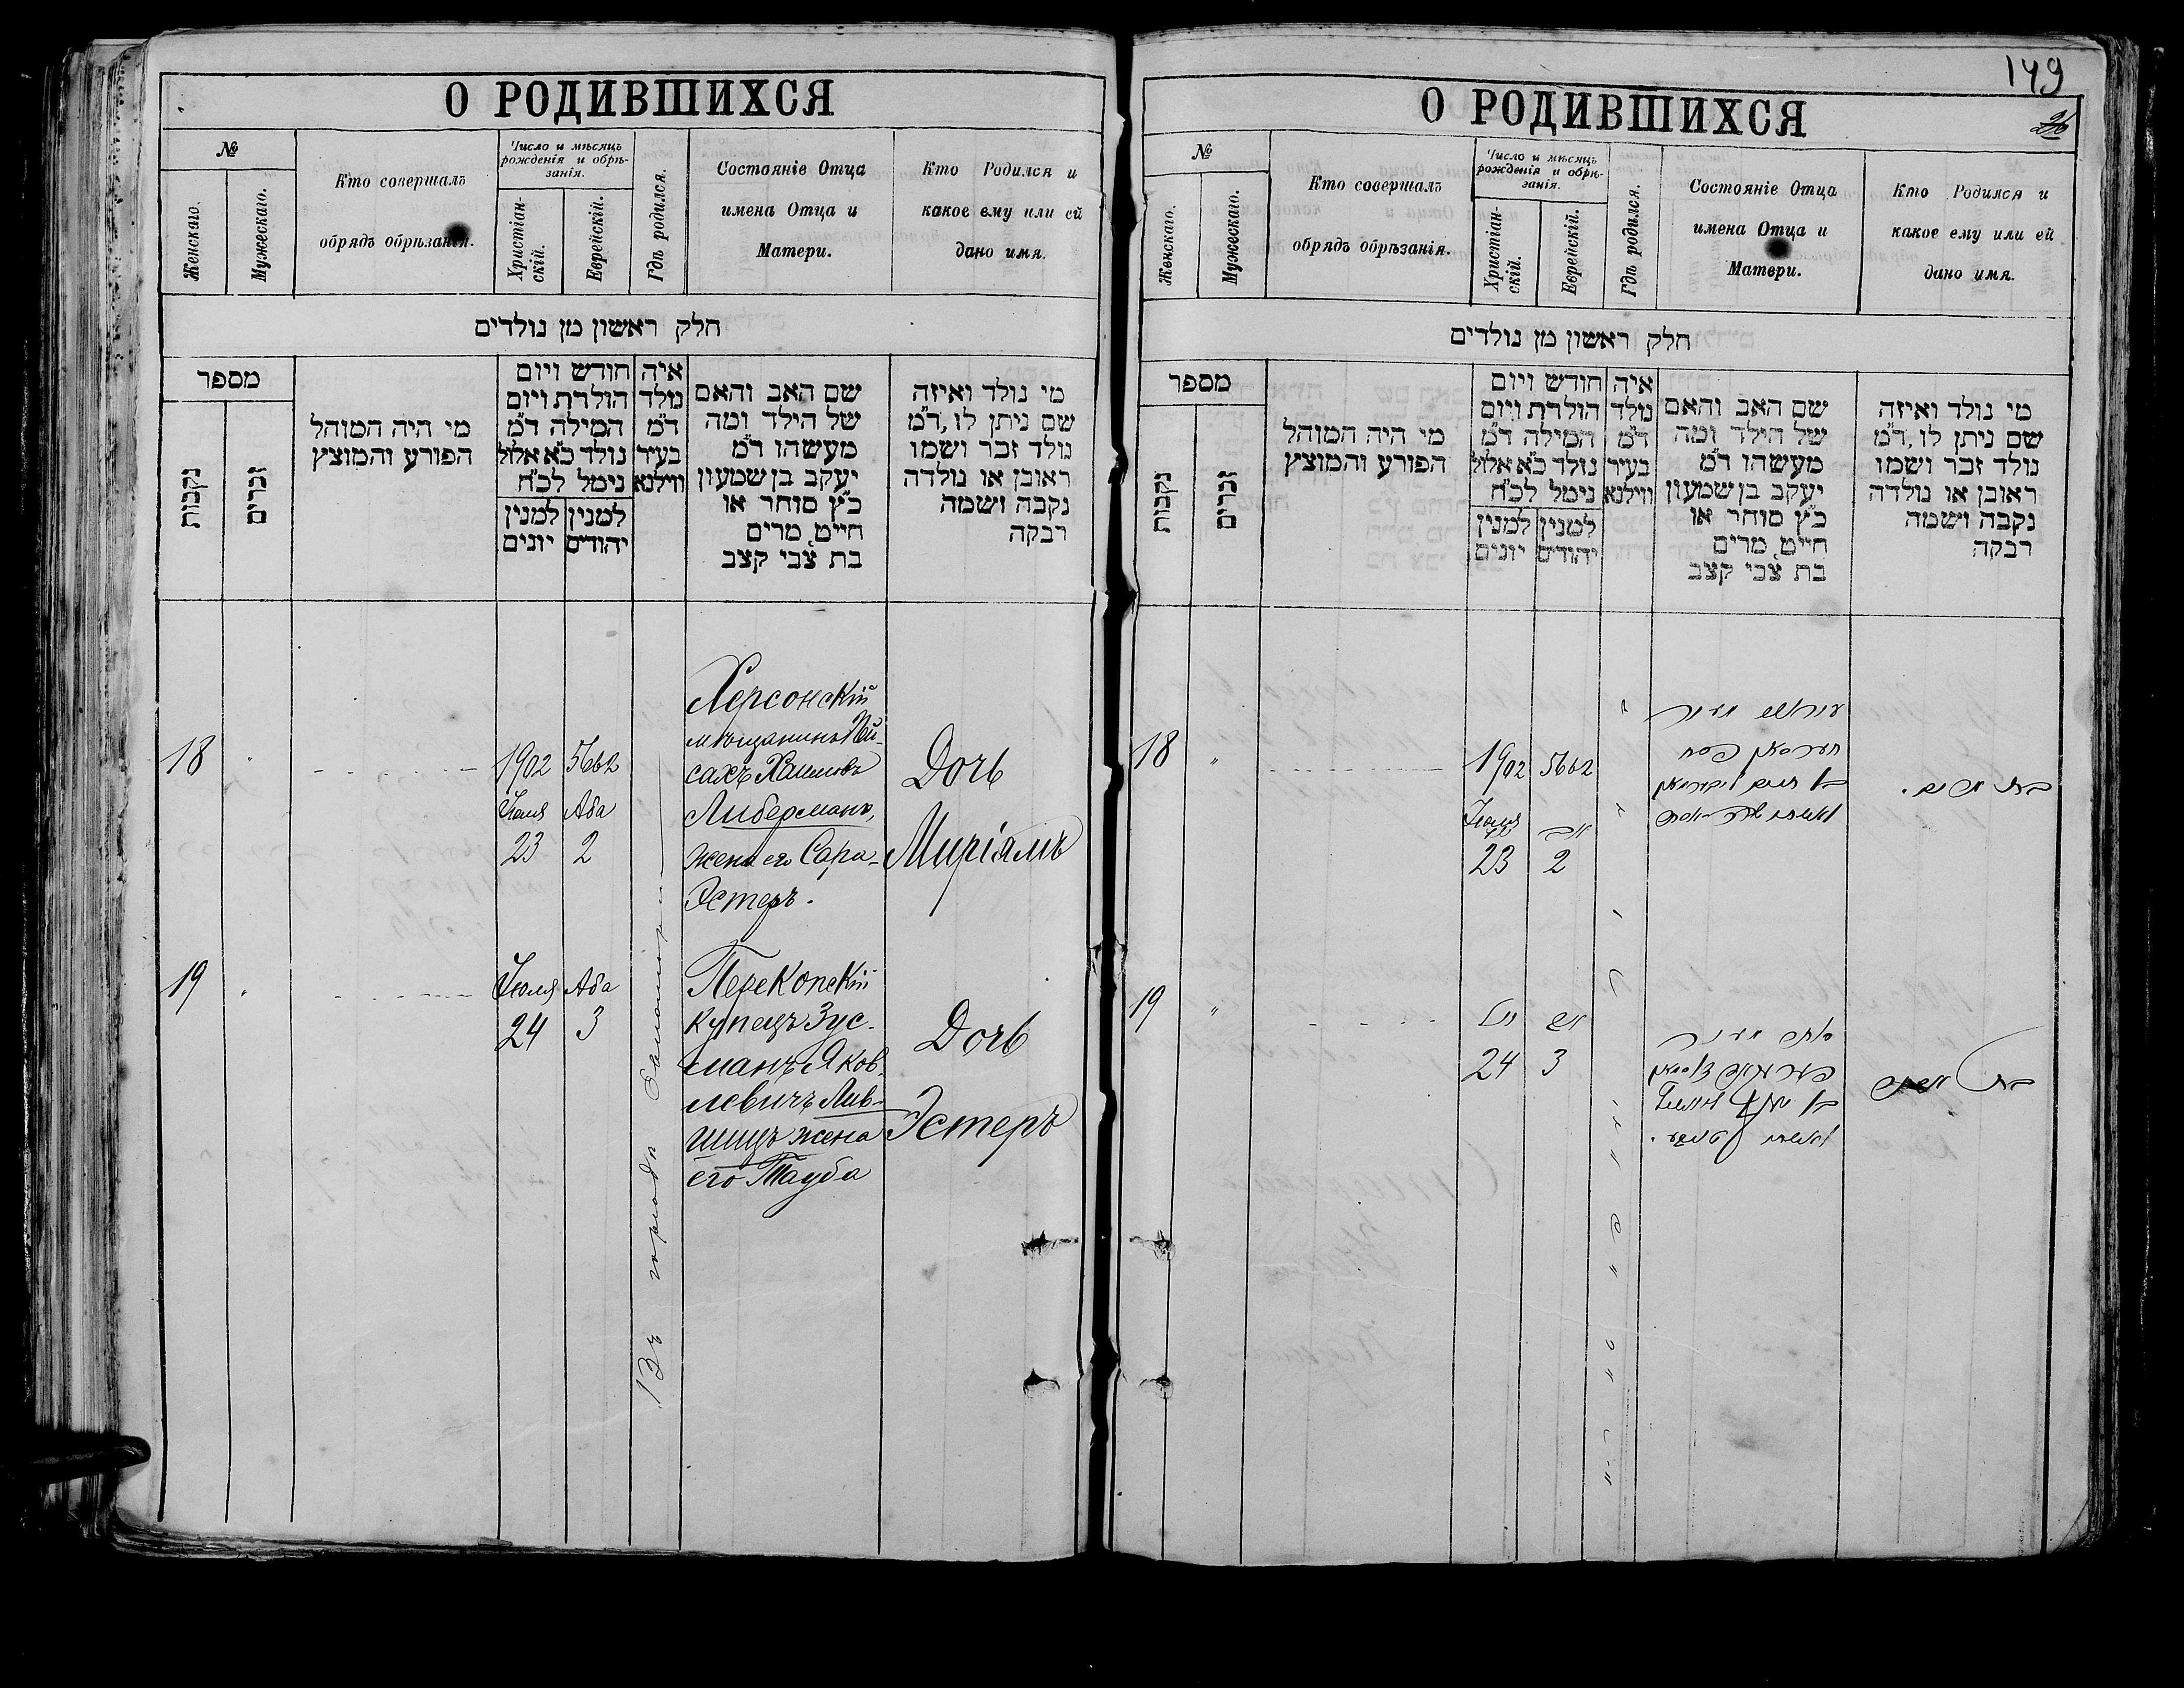 О РОДИВШИХСЯ
№
Женскаго.
Мужескаго.
Кто совершалъ
обрядъ обрѣзанія.
Число и мѣсяцъ
рожденія и обрѣ-
занія.
Христіан-
скій.
Еврейскій.
Гдѣ родился.
Состояніе Отца
имена Отца и
Матери.
Кто Родился и
какое ему или ей
дано имя.
חלק ראשון מן נולדים
מספר
נקבות
זכרים
מי היה המוהל
הפורע והמוצץ
חודש ויום
הולדת ויום
המילה ד״מ
נולד כ״א אלול
נימל לכ״ח
למנין
יונים
למנין
יהודים
איה
נולד
ד״מ
בעיר
ווילנא
שם האב והאם
של הילד ומה
מעשהו ד״מ
יעקב בן שמעון
כ״ץ סוחר או
חייט, מרים
בת צבי קצב
מי נולד ואיזה
שם ניתן לו, ד״מ
נולד זכר ושמו
ראובן או נולדה
נקבה ושמה
רבקה
18
"
1902
Іюля
23
5662
Аба
2
Херсонскій
мѣщанинъ Пей-
сахъ Хаимовъ
Либерманъ,
жена его Сара-
Эстеръ.
Дочь
Миріямъ
19
"
Іюля
24
Аба
3
Въ городѣ
Перекопскій
купецъ Зус-
манъ Яков-
левичъ Лив-
шицъ жена
его Тауба
Дочь
Эстеръ
149
26
О РОДИВШИХСЯ
№
Женскаго.
Мужескаго.
Кто совершалъ
обрядъ обрѣзанія.
Число и мѣсяцъ
рожденія и обрѣ-
занія.
Христіан-
скій.
Еврейскій.
Гдѣ родился.
Состояніе Отца
имена Отца и
Матери.
Кто Родился и
какое ему или ей
дано имя.
חלק ראשון מן נולדים
מספר
נקבות
זכרים
מי היה המוהל
הפורע והמוצץ
חודש ויום
הולדת ויום
המילה ד״מ
נולד כ״א אלול
נימל לכ״ח
למנין
יונים
למנין
יהודים
איה
נולד
ד״מ
בעיר
ווילנא
שם האב והאם
של הילד ומה
מעשהו ד״מ
יעקב בן שמעון
כ״ץ סוחר או
חייט, מרים
בת צבי קצב
מי נולד ואיזה
שם ניתן לו, ד״מ
נולד זכר ושמו
ראובן או נולדה
נקבה ושמה
רבקה
18
"
1902
Іюля
23
5662
אב
2
בת מרים.
19
"
24
אב
3
בת אסתר